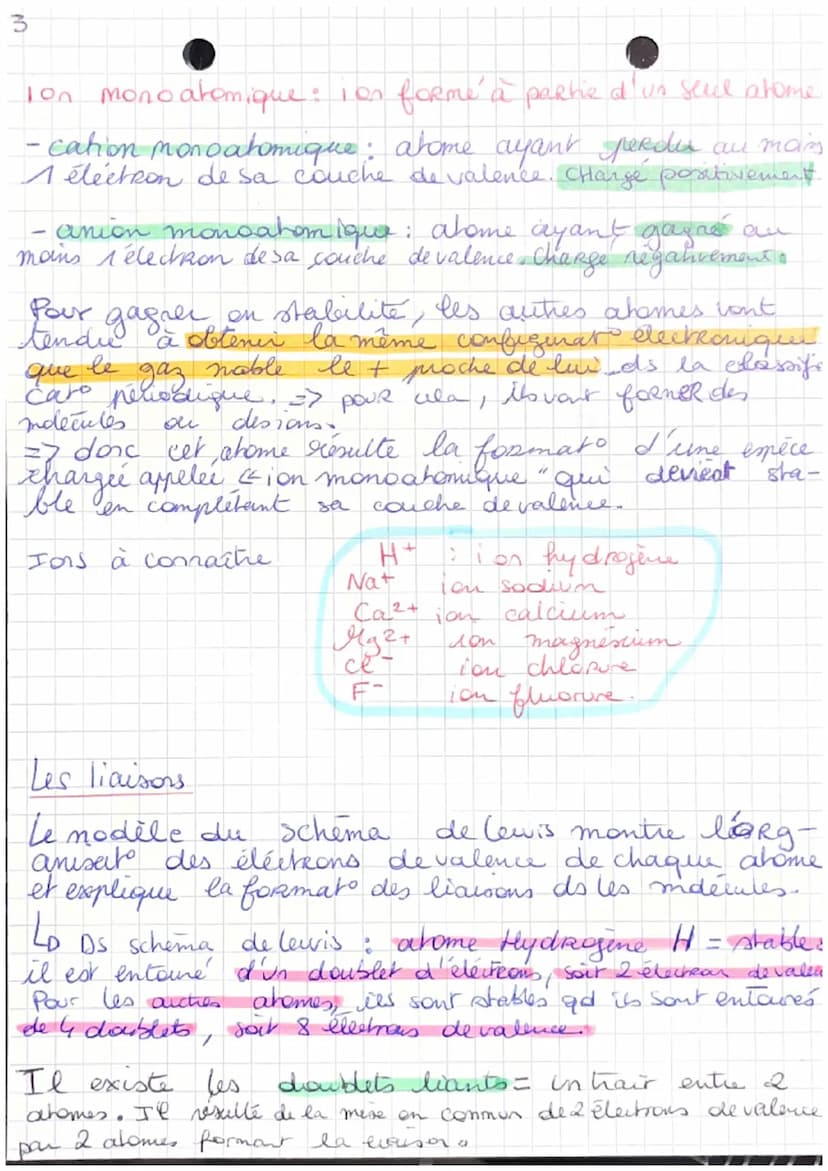 3
Ion monoatomique : ion formé à partie d'un seul atome
- cation monoatomique : atome ayant perdu au moins
1 électron de sa couche de valence. Chargé positivement
- anion monoatomique : atome ayant gagné au
moins 1 électron de sa couche de valence. Chargé négativement.
Pour gagner en stabilité, les autres atomes vont
tendre à obtenir la même configurat° électronique
que le gaz noble le + proche de lui ds la classifi
cat° périodique. => pour cela, ils vont former des
molécules ou des ions.
=> donc cet atome résulte la format° d'une espèce
chargée appelée "ion monoatomique" qui devient sta-
ble en complétant sa couche de valence.
Ions à connaître
H+ : ion hydrogène
Na+ ion sodium
Ca2+ ion calcium
Mg2+ ion magnésium
Cl- ion chlorure
F- ion fluorure.
Les liaisons
Le modèle du schéma de Lewis montre l'org-
anisat° des électrons de valence de chaque atome
et explique la format° des liaisons ds les molécules.
↳ Ds schéma de lewis : atome Hydrogène H = stable :
il est entouré d'un doublet d'électrons, soit 2 électron de valen
Pour les autres atomes, ils sont stables qd ils sont entourés
de 4 doublets, soit 8 électrons de valence.
Il existe les doublets liants = un trait entre 2
atomes. Il résulte de la mise en commun de 2 électrons de valence
par 2 atomes formant la liaison.